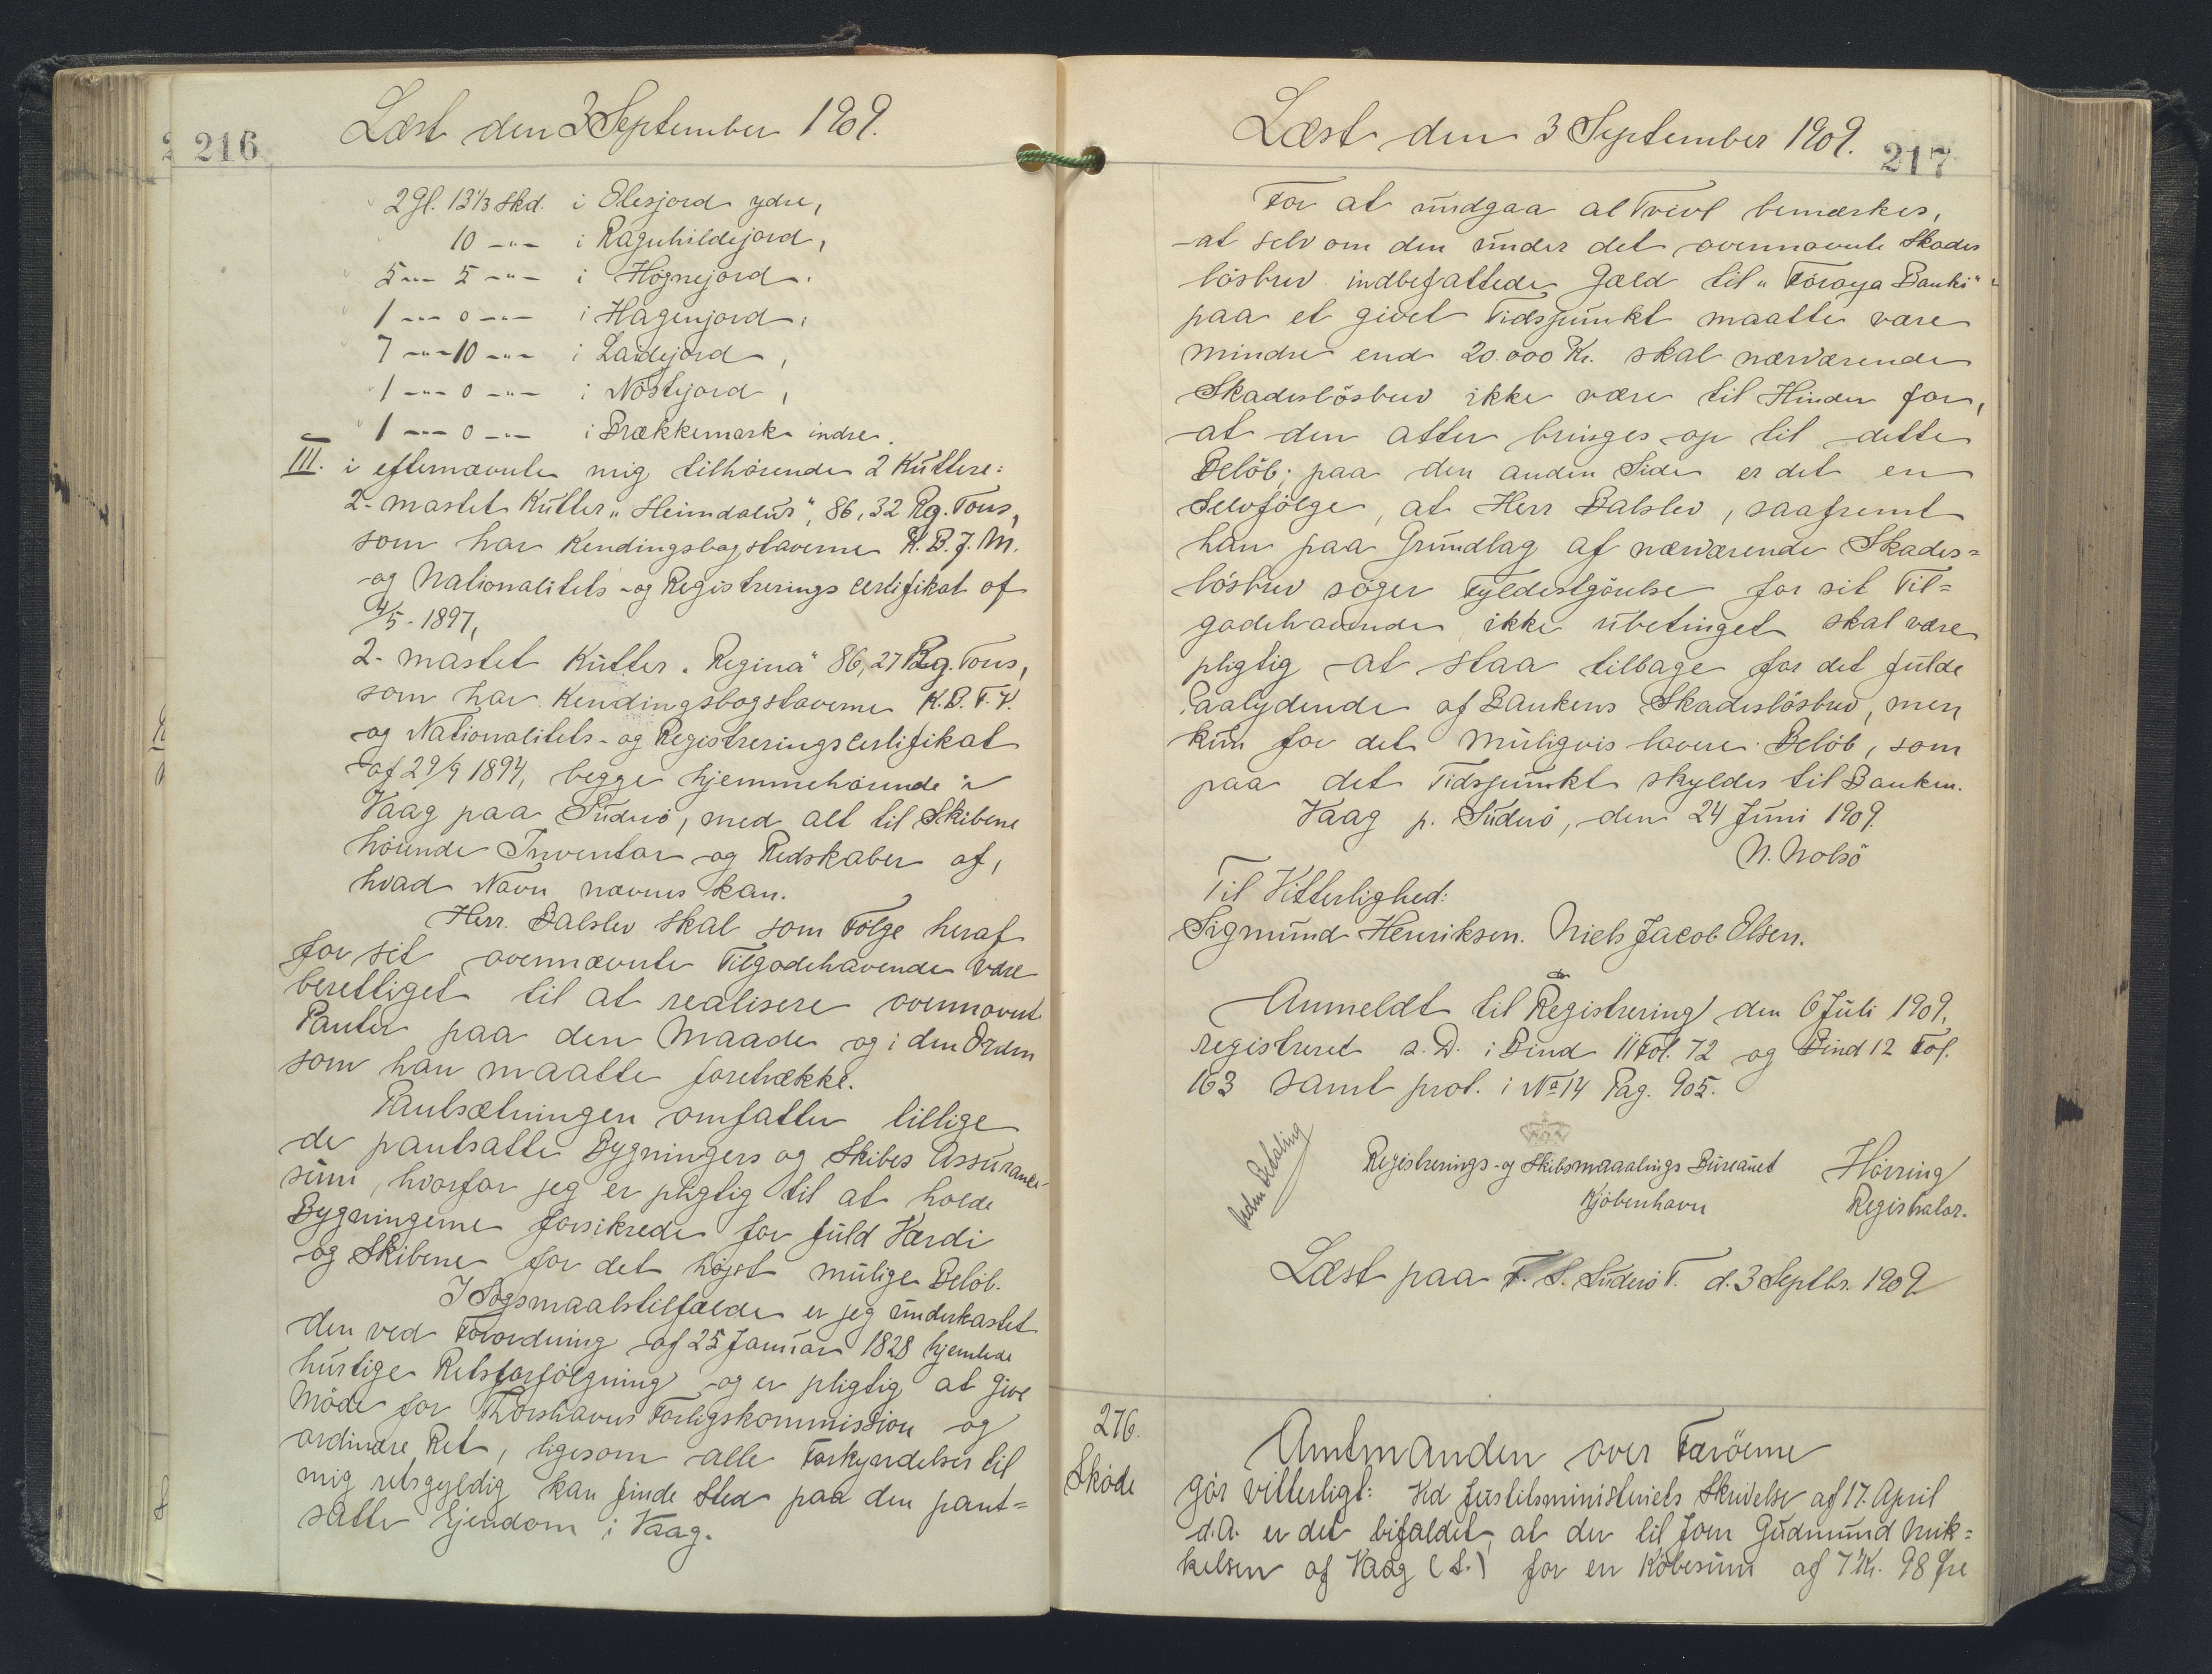 216
Læst den 3 September 1909.
2 Gl. 13 1/3 Skd. i Olesjord ydre,
10 -"- i Ragnhildejord,
5 -"- 5 -"- i Högnejord.
1 -"- 0 -"- i Hagenjord,
7 -"- 10 -"- i Laidejord,
1 -"- 0 -"- i Nöstejord,
1 -"- 0 -"- i Brækkemark indre.
III. i efternævnte mig tilhörende 2 Kuttere:
2-mastet Kutter "Heimdalur", 86,32 Rg. Tons,
som har Kendingsbogstaverne N.B.J.M.
og Nationalitets- og Registrerings certifikat af
4/5-1897,
2-mastet Kutter "Regina" 86,27 Rg. Tons,
som har Kendingsbogstaverne N.B.F.V.
og Nationalitets- og Registreringscertifikat
af 29/9 1894, begge hjemmehörende i
Vaag paa Suderö, med alt til Skibene
hörende Inventar og Redskaber af,
hvad Navn nævnes kan.
Herr. Balslev skal som Fölge heraf
for sit ovennævnte Tilgodehavende være
berettiget til at realisere ovennævnt
Panter paa den Maade og i den Orden
som han maatte foretrække.
Pantsætningen omfatter tillige
de pantsatte Bygningers og Skibes Assurance-
sum, hvorfor jeg er pligtig til at holde
Bygningerne forsikrede for fuld Værdi
og Skibene for det höjst mulige Belöb.
I Sögsmaalstilfælde er jeg underkastet
den ved Forordning af 25 Januar 1828 hjemlede
hurtige Retsforfölgning og er pligtig at give
Möde for Thorshavns Forligskommission og
ordinære Ret, ligesom alle Forkyndelser til
mig retsgyldig kan finde Sted paa den pant=
satte Ejendom i Vaag.
Læst den 3 September 1909.
217
For at undgaa al Tvivl bemærkes,
at selv om den under det ovennævnte Skades
lösbrev indbefattede Gæld til "Föroya Banki"
paa et givet Tidspunkt maatte være
mindre end 20.000 Kr. skal nærværende
Skadeslösbrev ikke være til Hinder for,
at den atter bringes op til dette
Belöb; paa den anden Side er det en
Selvfölge, at Herr Balslev, saafremt
han paa Grundlag af nærværende Skades=
lösbrev söger Fyldestgörelse for sit Til=
godehavende ikke ubetinget skal være
pligtig at staa tilbage for det fulde
Paalydende af Bankens Skadeslösbrev, men
kun for det muligvis lavere Belöb, som
paa det Tidspunkt skyldes til Banken.
Vaag p. Suderö, den 24 Juni 1909.
N. Nolsö
Til Vitterlighed:
Sigmund Henriksen. Niels Jacob Olsen.
Anmeldt til Registrering den 6 Juli 1909,
registreret s.D. i Bind 11 Fol. 72 og Bind 12 Fol.
163 samt prot. i No 14 Pag. 905.
uden Betaling
Registrerings- og Skibsmaalings Bureauet Hörring
Kjöbenhavn Registrator.
Læst paa F. S. Suderö T. d. 3 Septbr. 1909
276.
Sköde
Amtmanden over Færöerne
gör vitterligt: Ved Justitsministeriets Skrivelse af 17. April
d.A. er det bifaldet, at der til Joen Gudmund Mik=
kelsen af Vaag (S.) for en Köbesum af 7 Kr. 98 Öre